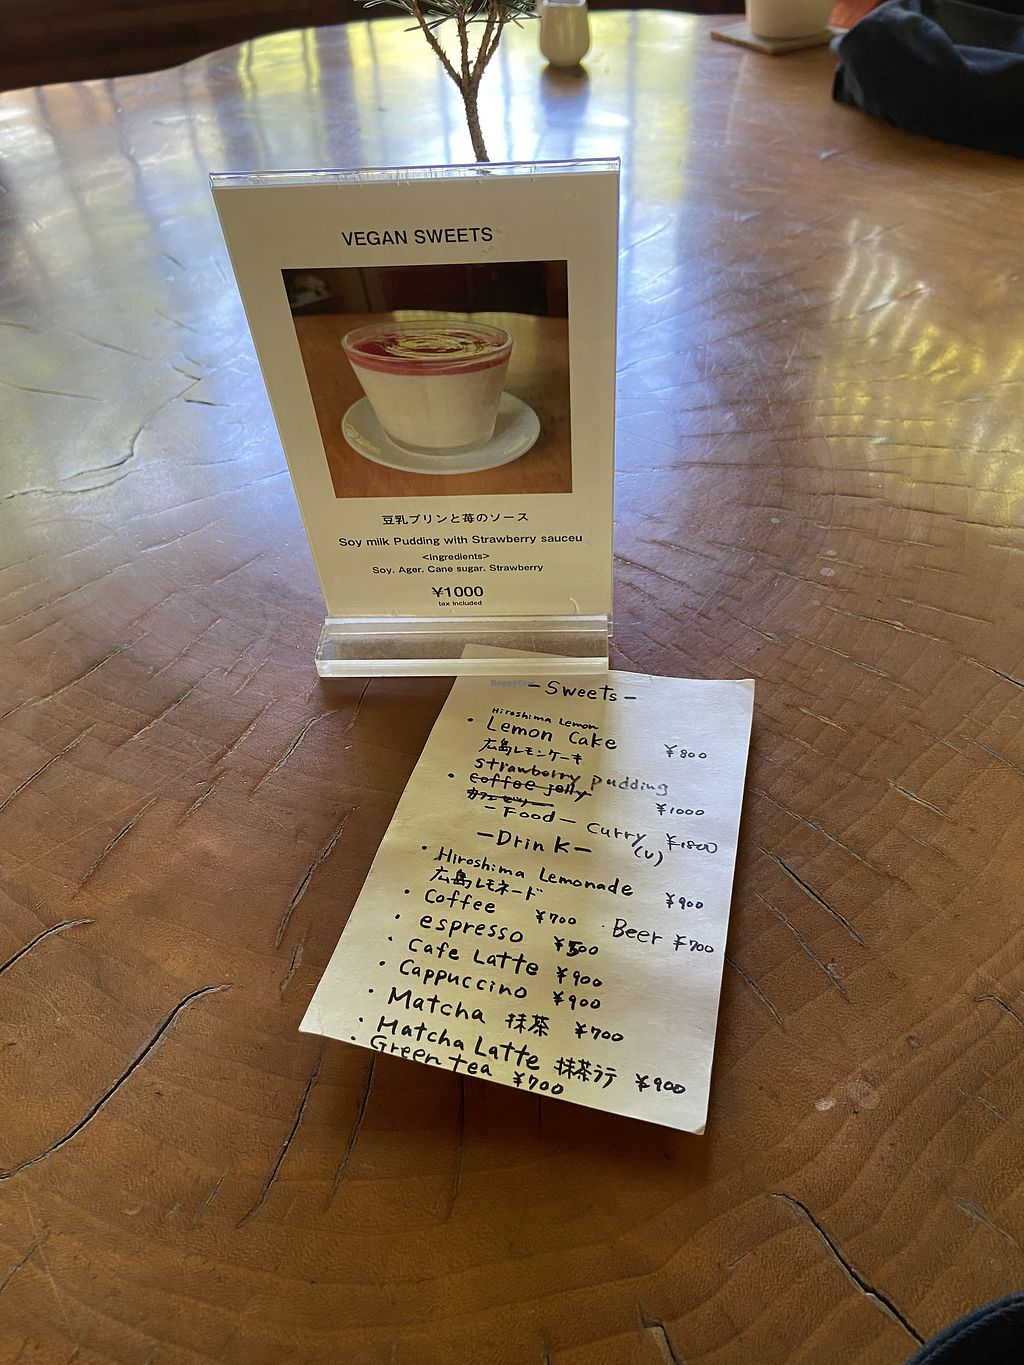 VEGAN SWEETS
豆乳プリンと苺のソース
Soy milk Pudding with Strawberry sauceu
<ingredients>
Soy. Ager. Cane sugar. Strawberry
¥1000
tax included
HappyCow
- Sweets -
Hiroshima Lemon
・Lemon Cake ¥800
広島レモンケーキ
strawberry pudding
・coffee jelly
カフェゼリー ¥1000
- Food - Curry ¥1800
(V)
- Drink -
・Hiroshima Lemonade
広島レモネード ¥900
・Coffee ¥700 ・Beer ¥700
・espresso ¥500
・Cafe Latte ¥900
・Cappuccino ¥900
・Matcha 抹茶 ¥700
・Matcha Latte 抹茶ラテ ¥900
・Green tea ¥700